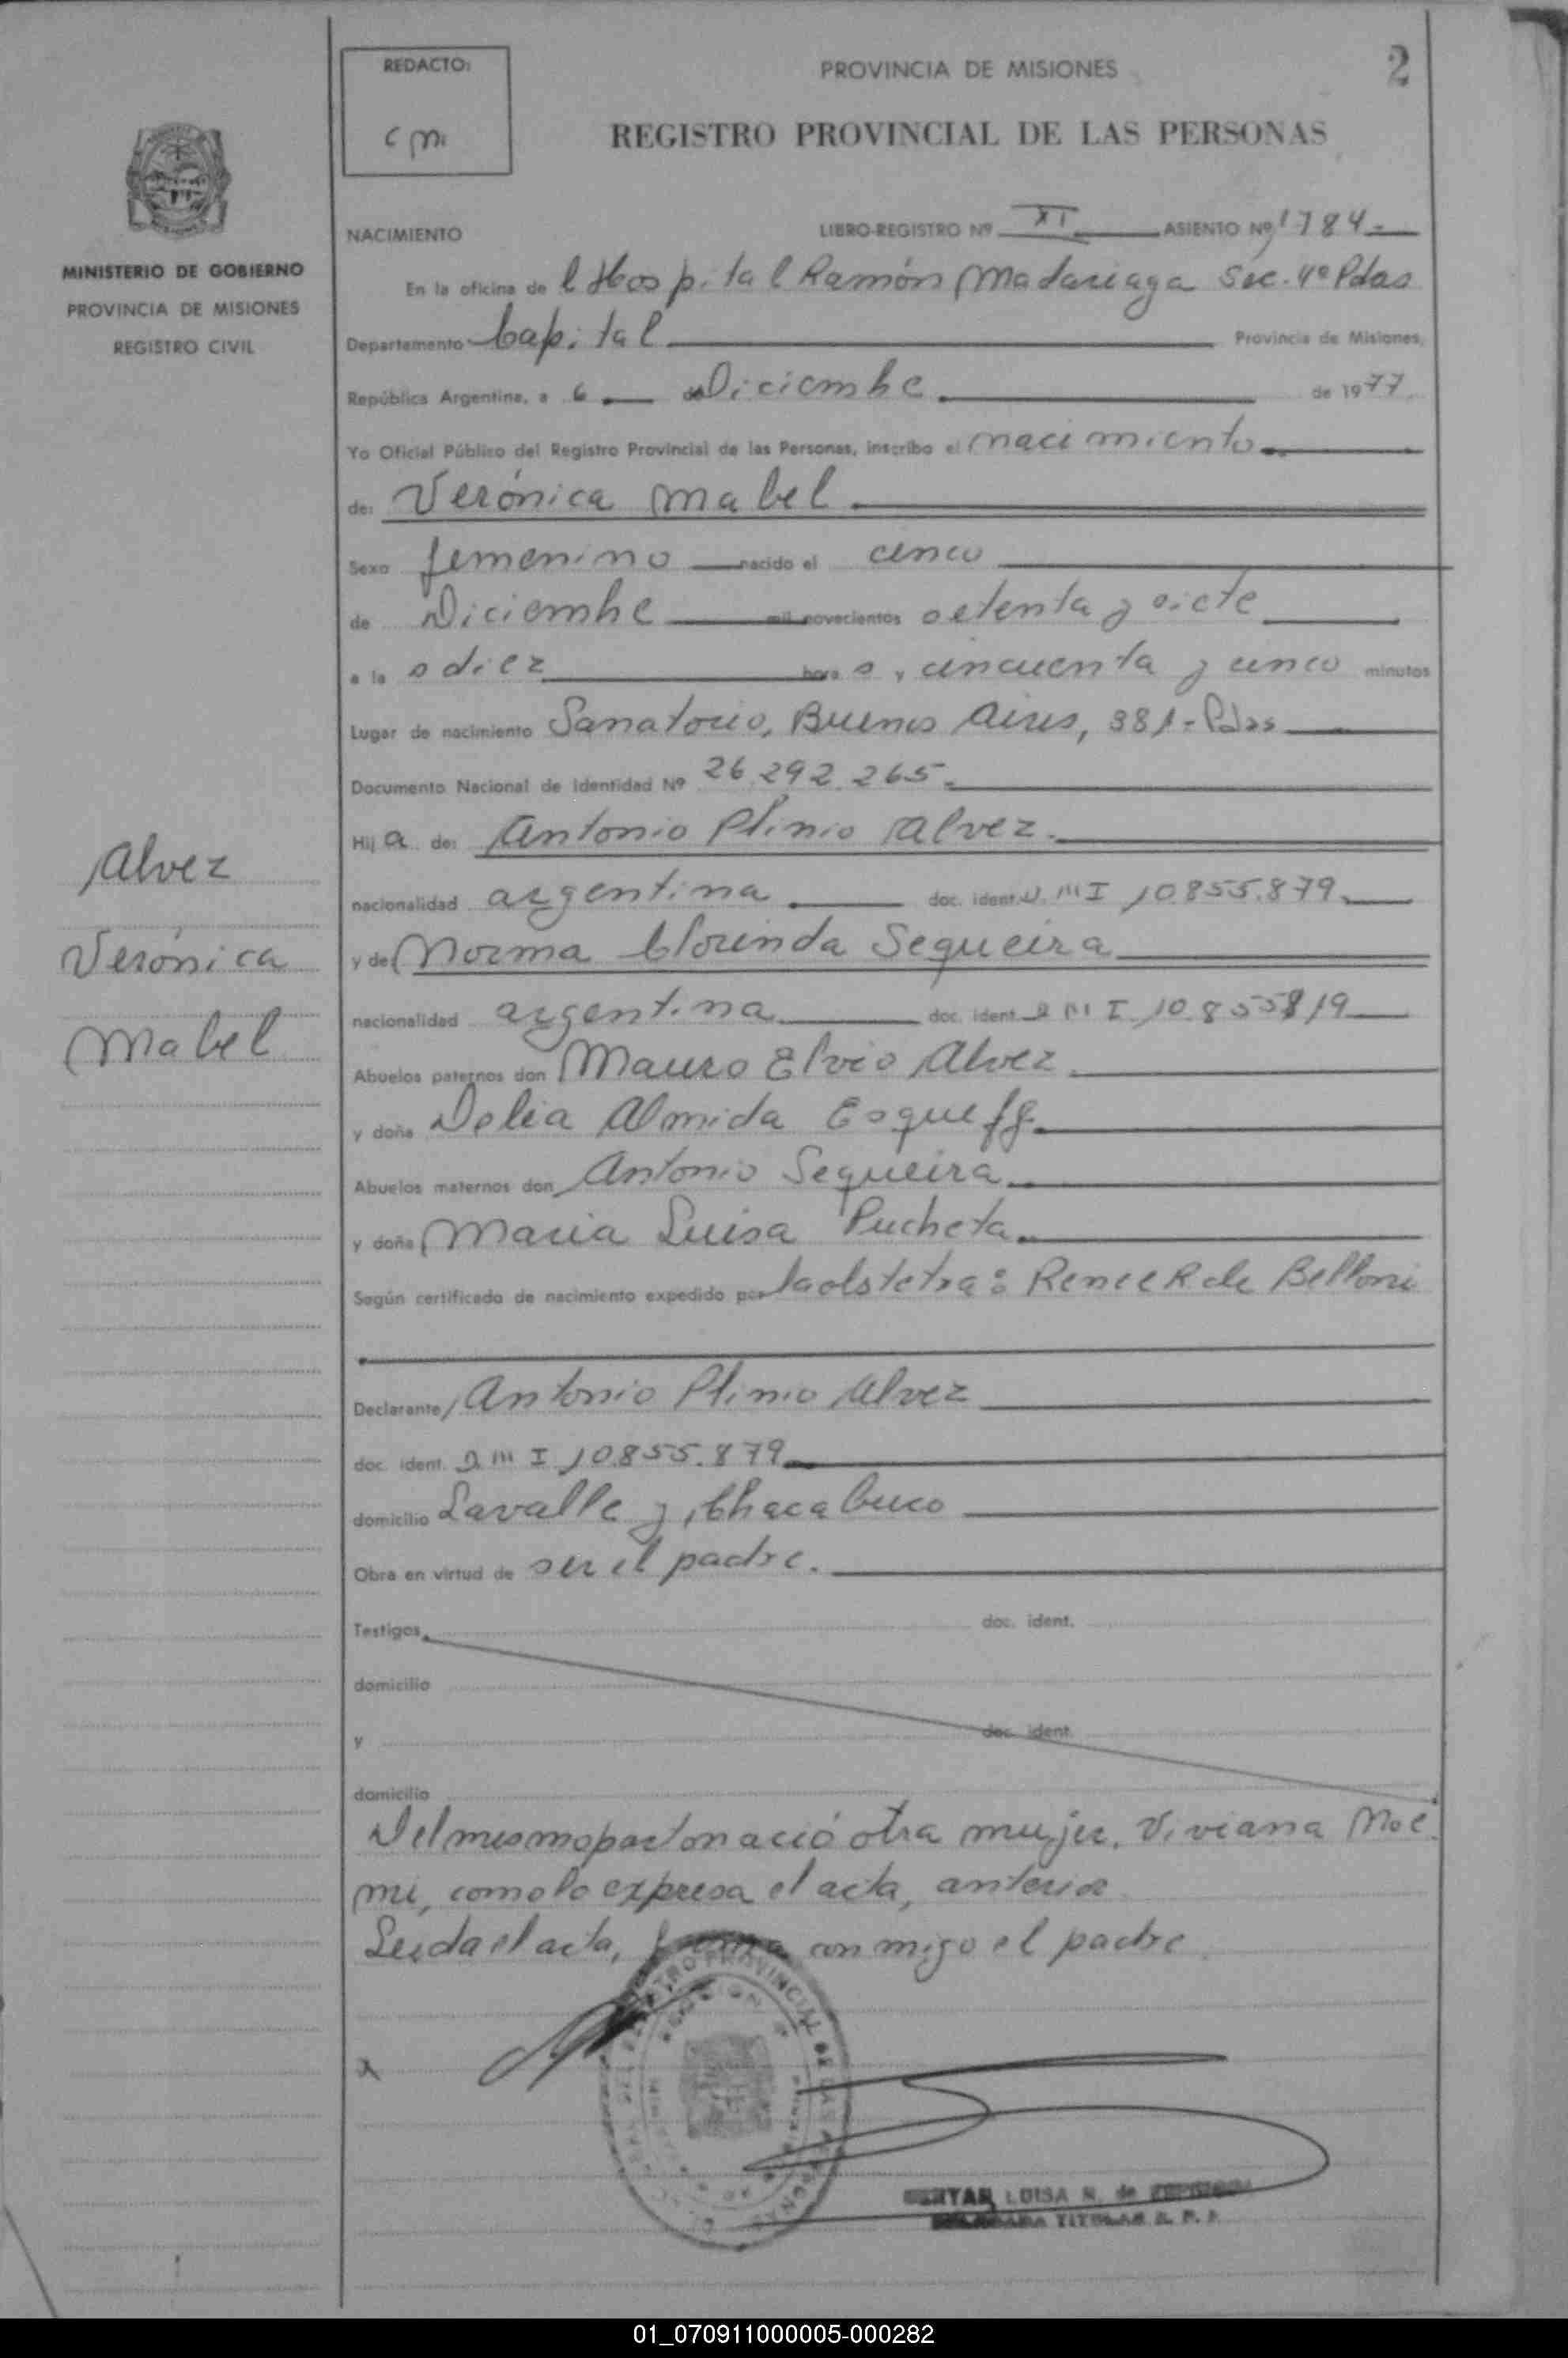 REDACTO:
PROVINCIA DE MISIONES
2
REGISTRO PROVINCIAL DE LAS PERSONAS
NACIMIENTO LIBRO-REGISTRO Nº XI ASIENTO Nº 1784-
MINISTERIO DE GOBIERNO
PROVINCIA DE MISIONES
REGISTRO CIVIL
En la oficina de l Hospital Ramón Madariaga Sec. 4º Pdas
Departamento Capital Provincia de Misiones,
República Argentina, a 6 de Diciembre de 1977.
Yo Oficial Público del Registro Provincial de las Personas, inscribo el nacimiento
de: Verónica Mabel
Sexo femenino nacido el cinco
de Diciembre mil novecientos setenta y siete
a la s diez hora s y cincuenta y cinco minutos
Lugar de nacimiento Sanatorio, Buenos Aires, 381- Pdas
Documento Nacional de Identidad Nº 26.292.265-
Hij a de: Antonio Plinio Alvez
nacionalidad argentina doc. ident. D.M I 10.855.879
y de Norma Clorinda Sequeira
nacionalidad argentina doc. ident. D M I 10.855819
Abuelos paternos don Mauro Elvio Alvez
y doña Delia Almida Esqueff
Abuelos maternos don Antonio Sequeira
y doña Maria Luisa Pucheta
Según certificado de nacimiento expedido por la obstetra: Renee R de Belloni
Declarante Antonio Plinio Alvez
doc. ident. D M I 10855.879
domicilio Lavalle y Chacabuco
Obra en virtud de ser el padre.
Testigos doc. ident.
domicilio
y doc. ident.
domicilio
Del mismo parto nació otra mujer, Viviana Noe
mi, como lo expresa el acta, anterior
Leida el acta, firma con migo el padre
Alvez
Verónica
Mabel
LUISA N. de
TITULAR R. P. P.
01_070911000005-000282